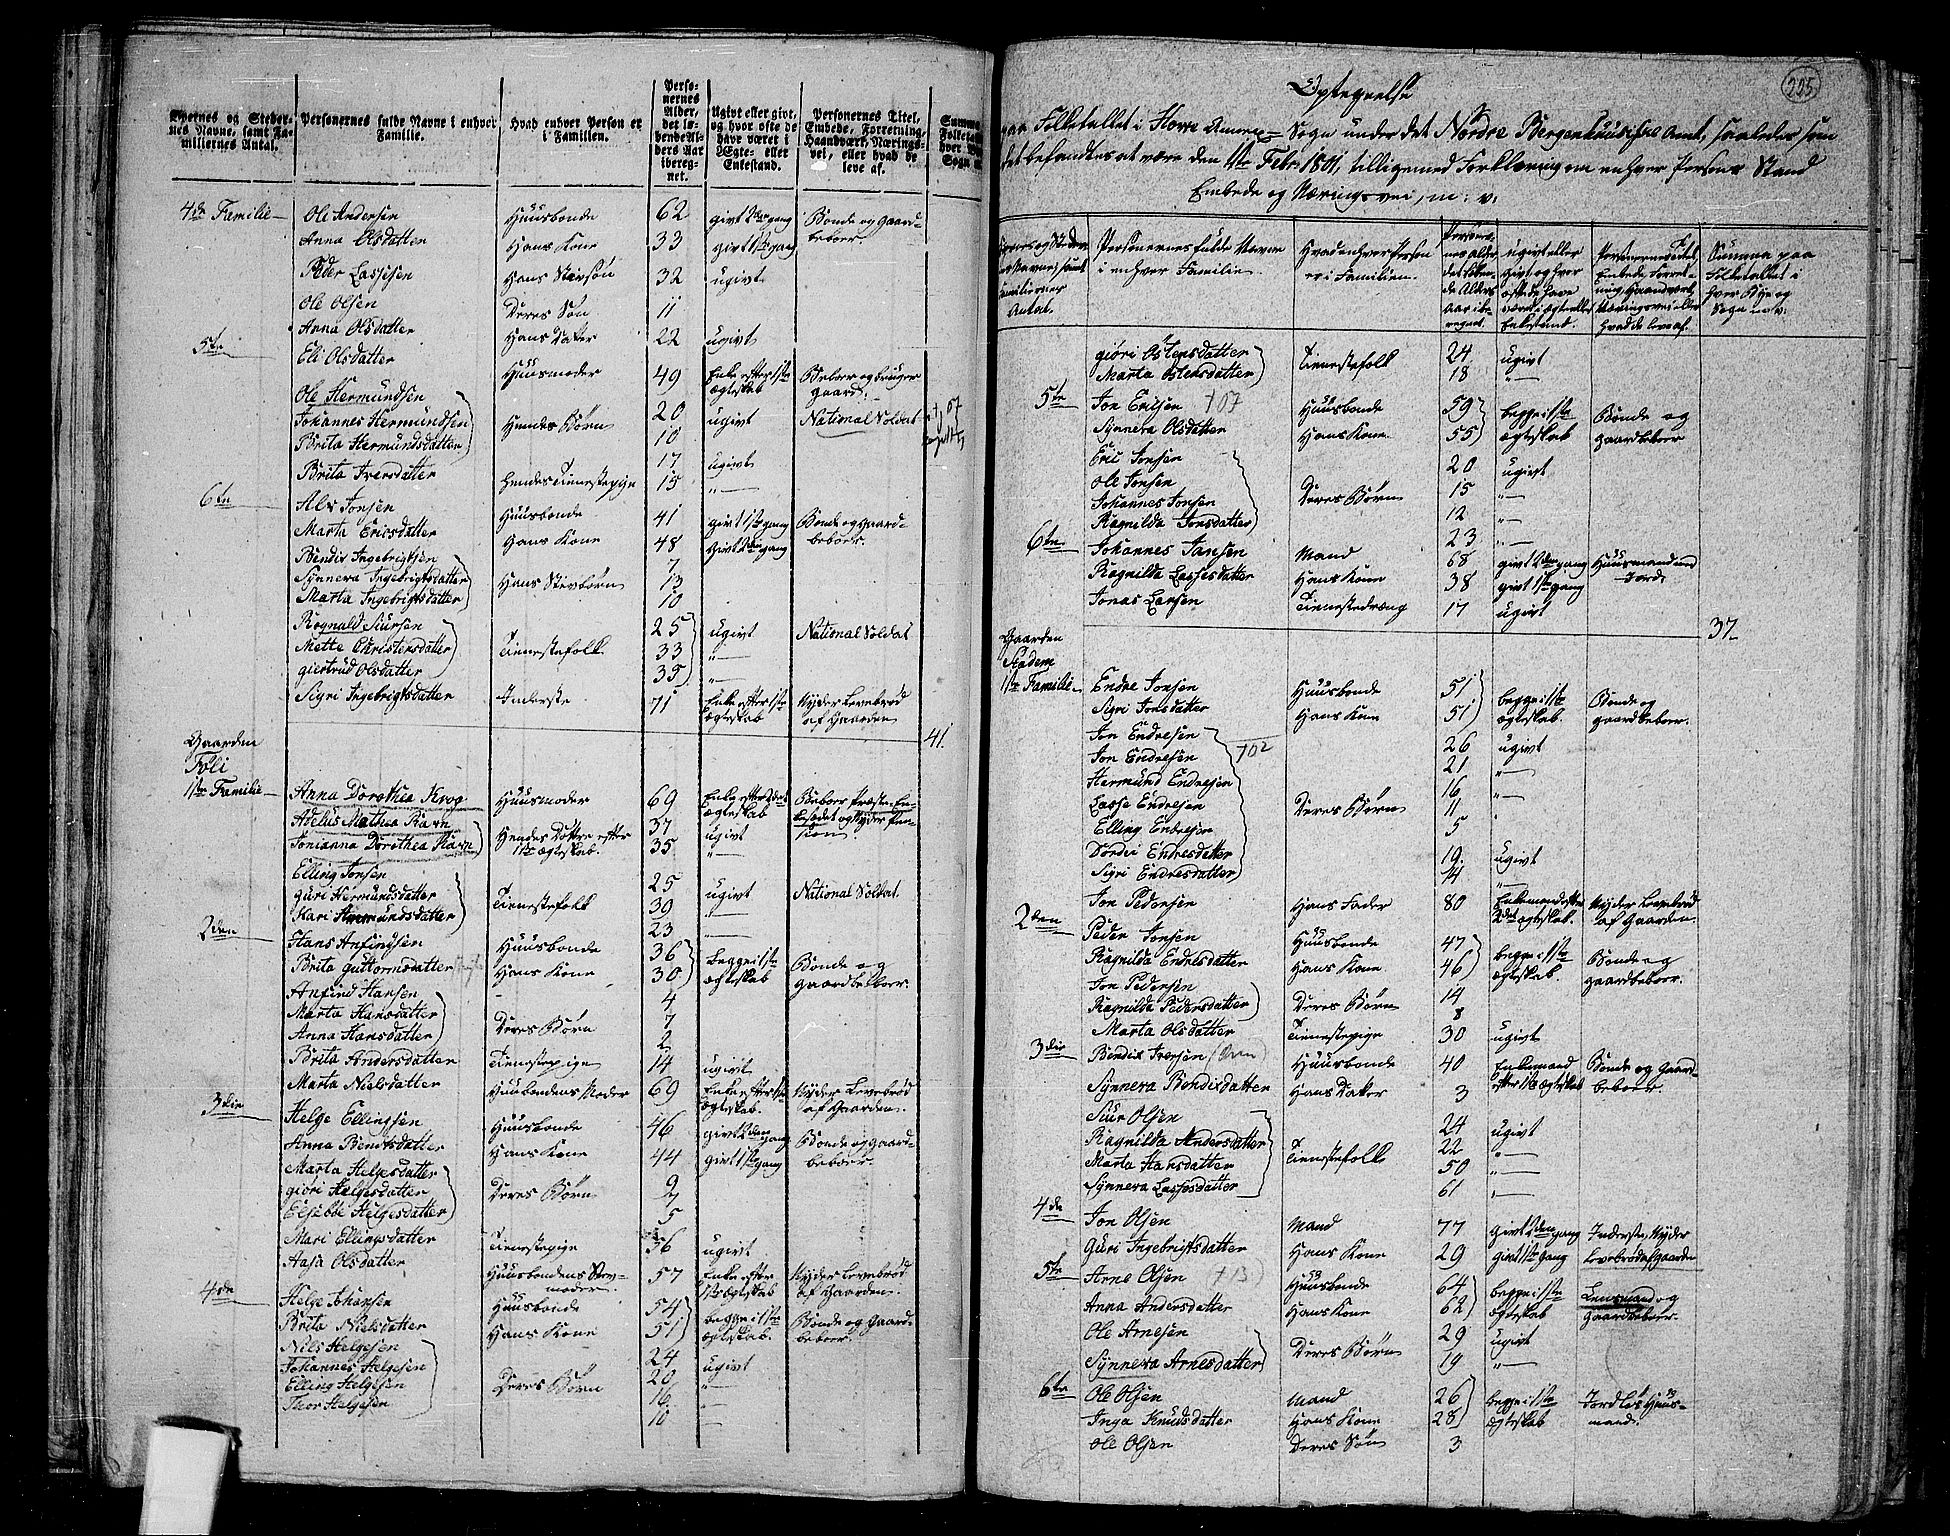 Byernes og Stedernes Navne, samt Familiernes Antal.
Personernes fulde Navne i enhver Familie.
Hvad enhver Person er i Familien.
Personernes Alder, det løbende Alders Aar iberegnet.
Ugivt eller givt, og hvor ofte de have været i Egte- eller Enkestand.
Personernes Titel, Embede, Forretning, Haandværk, Næringsvei, eller hvad de leve af.
4de Familie Ole Andersen Huusbonde 62 givt 2den gang Bonde og Gaard-
Anna Olsdatter Hans Kone 33 givt 1ste gang beboer.
Peder Lassesen Hans Stevsøn 32 ugivt
Ole Olsen Deres Søn 11
Anna Olsdatter Hans Datter 22 ugivt
5te Eli Olsdatter Huusmoder 49 Enke efter 1ste Ægteskab Beboer og bruger gaard.
Ole Hermundsen 20 ugivt National Soldat
Johannes Hermundsen Hendes Børn 10
Brita Hermundsdatter 17 ugivt
Brita Iversdatter Hendes Tienestepige 15 "
6te Alv Jonsen Huusbonde 41 givt 1ste gang Bonde og Gaard-
Marta Ericsdatter Hans Kone 48 givt 2den gang beboer.
Bendix Ingebrigtsen 7
Synneva Ingebrigtsdatter Hans Stevbørn 13
Marta Ingebrigtsdatter 10
Rognald Siursen 25 ugivt National Soldat
Mette Christensdatter Tienestefolk 33 "
Giertrud Olsdatter 35 "
Sigri Ingebrigtsdatter Inderste 71 Enke efter 1ste Ægteskab Nyder Levebrød af Gaarden
41.
Gaarden
Føli
1ste Familie Anna Dorothea Krog Huusmoder 69 Enke efter 2det Ægteskab Beboer Præste En-
Adelus Mathea Ravn Hendes Døttre efter 37 ugivt
Jonianna Dorothea Ravn 1ste Ægteskab. 35 "
Elling Jonsen 25 ugivt National Soldat.
Guri Hermundsdatter Tienestefolk 39 "
Kari Hermundsdatter 23 "
2den Hans Anfindsen Huusbonde 36 begge i 1ste Bonde og
Brita Guttormsdatter Hans Kone 30 Ægteskab gaardbeboer.
Anfind Hansen 4
Marta Hansdatter Deres Børn 7
Anna Hansdatter 2
Brita Andersdatter Tienestepige 14 ugivt
Marta Nielsdatter Huusbondens Moder 69 Enke efter 1ste Ægteskab. Nyder Levebrød af Gaarden.
3die Helge Ellingsen Huusbonde 46 givt 2den gang Bonde og gaard-
Anna Bendtsdatter Hans Kone 44 givt 1ste gang beboer.
Marta Helgesdatter 9
Giøri Helgesdatter Deres Børn 7
Elsebde Helgesdatter 5
Mari Ellingsdatter Tienestepige 36 ugivt
Aasa Olsdatter Huusbondens Stev-moder. 57 Enke efter 1ste Ægteskab Nyder Levebrød af Gaarden.
4de Helge Johansen Huusbonde 54 begge i 1ste Bonde og Gaard-
Brita Nielsdatter Hans Kone 51 Ægteskab. beboer.
Nils Helgesen 24 ugivt
Johannes Helgesen Deres Børn 20 "
Elling Helgesen 16 "
Thor Helgesen 10
225
Optegnelse
paa Folketallet i Howe Annex-Sogn under det Nordre Bergenhuusiske Amt, saaledes som
det befandtes at være den 1ste Febr. 1801, tilligemed Forklaring om enhver Persons Stand
Embede og Næringsvei, m: v:
Personernes fulde Navne i enhver Familie
Hvad enhver Person er i Familien
Summa paa Folketallet i hver Bye og Sogn m: v:
Giøri Ostensdatter Tienestefolk 24 ugivt
Marta Ostensdatter 18 "
5te Jon Ericsen †07 Huusbonde 59 begge i 1ste Bonde og
Synneva Olsdatter Hans Kone 55 Ægteskab gaardbeboer
Eric Jonsen 20 ugivt
Ole Jonsen Deres Børn 15 "
Johannes Jonsen 12 "
Ragnilda Jonsdatter 23 "
6te Johannes Jansen Mand 68 givt 2den gang Huusmand med
Ragnilda Lassesdatter Hans Kone 38 givt 1ste gang Jord.
Jonas Larsen Tienestedræng 17 ugivt
37
Gaarden
Indem
1ste Familie Endre Jonsen Huusbonde 51 begge i 1ste Bonde og
Sigri Jonsdatter Hans Kone 51 Ægteskab. gaardbeboer.
Jon Endresen †02 26 ugivt
Jon Endresen 21 "
Hermund Endresen 16 "
Lasse Endresen Deres Børn 11
Elling Endresen 5
Dordei Endresdatter 19 ugivt
Sigri Endresdatter 14 "
Jon Pedersen Hans Fader 80 Enkemand efter 2det Ægteskab. Nyder Levebrød af Gaarden.
2den Peder Jonsen Huusbonde 47 begge i 1ste Bonde og
Ragnilda Endresdatter Hans Kone 46 Ægteskab gaardbeboer.
Jon Pedersen 14
Ragnilda Pedersdatter Deres Børn 8
Marta Olsdatter Tienestepige 30 ugivt
3die Bendix Iversen Huusbonde 40 Enkemand Bonde og Gaard-
Synneva Bendixdatter Hans Datter 3 efter 1ste Ægteskab beboer.
Siur Olsen 24 ugivt
Ragnilda Andersdatter Tienestefolk 22 "
Marta Hansdatter 50 "
Synneva Lassesdatter 61 "
4de Jon Olsen Mand 77 givt 2den gang Inderste, Nyder
Guri Ingebrigtsdatter Hans Kone 29 givt 1ste gang Levebrød af gaarden
5te Arne Olsen (†13) Huusbonde 64 begge i 1ste Lensmand og
Anna Andersdatter Hans Kone 62 Ægteskab gaardbeboer.
Ole Arnesen Deres Børn 29 ugivt
Synneva Arnesdatter 19 "
6te Ole Olsen Mand 26 begge i 1ste Jordløs Huus-
Inga Knudsdatter Hans Kone 28 Ægteskab mand.
Ole Olsen Deres Søn 3